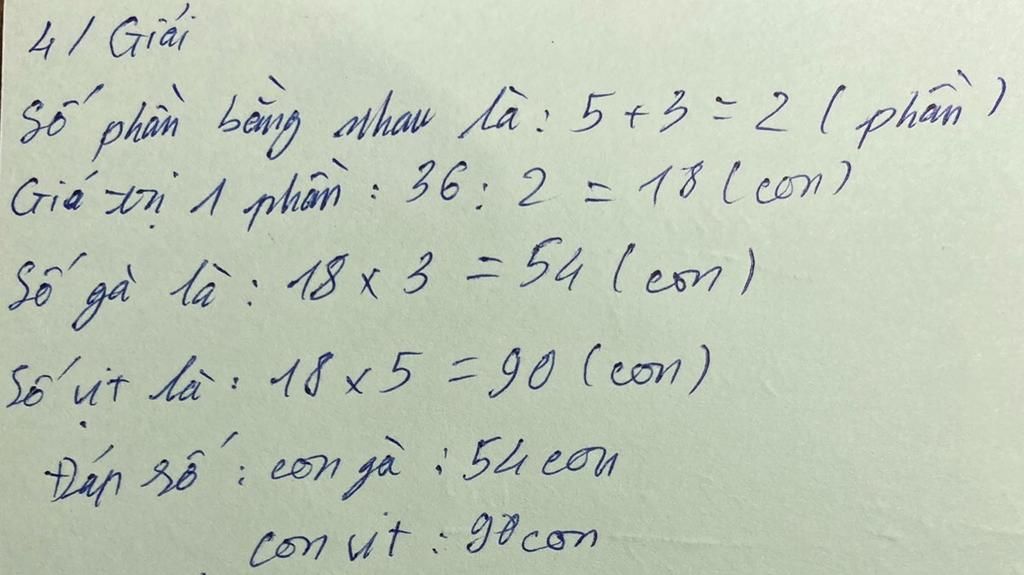 4/ Giải
Số phần bằng nhau là: 5 + 3 = 2 (phần)
Giá trị 1 phần: 36 : 2 = 18 (con)
Số gà là: 18 x 3 = 54 (con)
Số vịt là: 18 x 5 = 90 (con)
Đáp số: con gà: 54 con
con vịt: 90 con